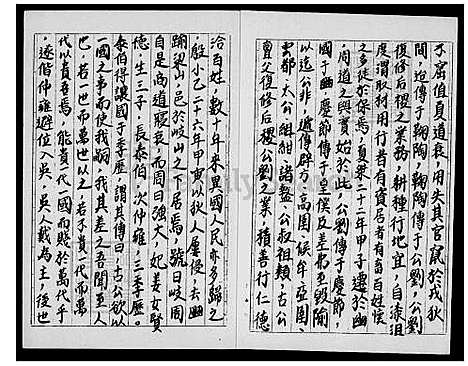 不窋值夏道衰用失其官竄於戎狄
間迨傳于鞠陶鞠陶傳于公劉公劉
復修后稷之業務耕種行地宜自漆沮
度渭取材用行者有資居者有畜百姓懷
之多徙於保焉夏桀二十二年甲子遷於豳
周道之興實始於此公劉傳于慶節
國于豳慶節傳于皇僕及差弗至毀隃
以迄公非遞傳辟方高圉侯牟亞圉
雲都太公組紺諸盩公叔祖類古公
亶父復修后稷公劉之業積善行仁德
洽百姓數十年來異國人民亦多歸之
殷小乙二十六年甲寅以狄人屢侵去豳
踰梁山邑於岐山之下居焉號曰岐周
自是商道寖衰而周日強大妃姜女賢
德生三子長泰伯次仲雍三季歷
泰伯得讓國于季歷謂其傳曰古公欲以
一國之事而使我嗣我其差之吾聞至人
也若一世而萬世以之若不貴一代而萬
代以貴吾焉能貴一國而賤於萬代乎
遂偕仲雍避位入吳吳人戴為主後世